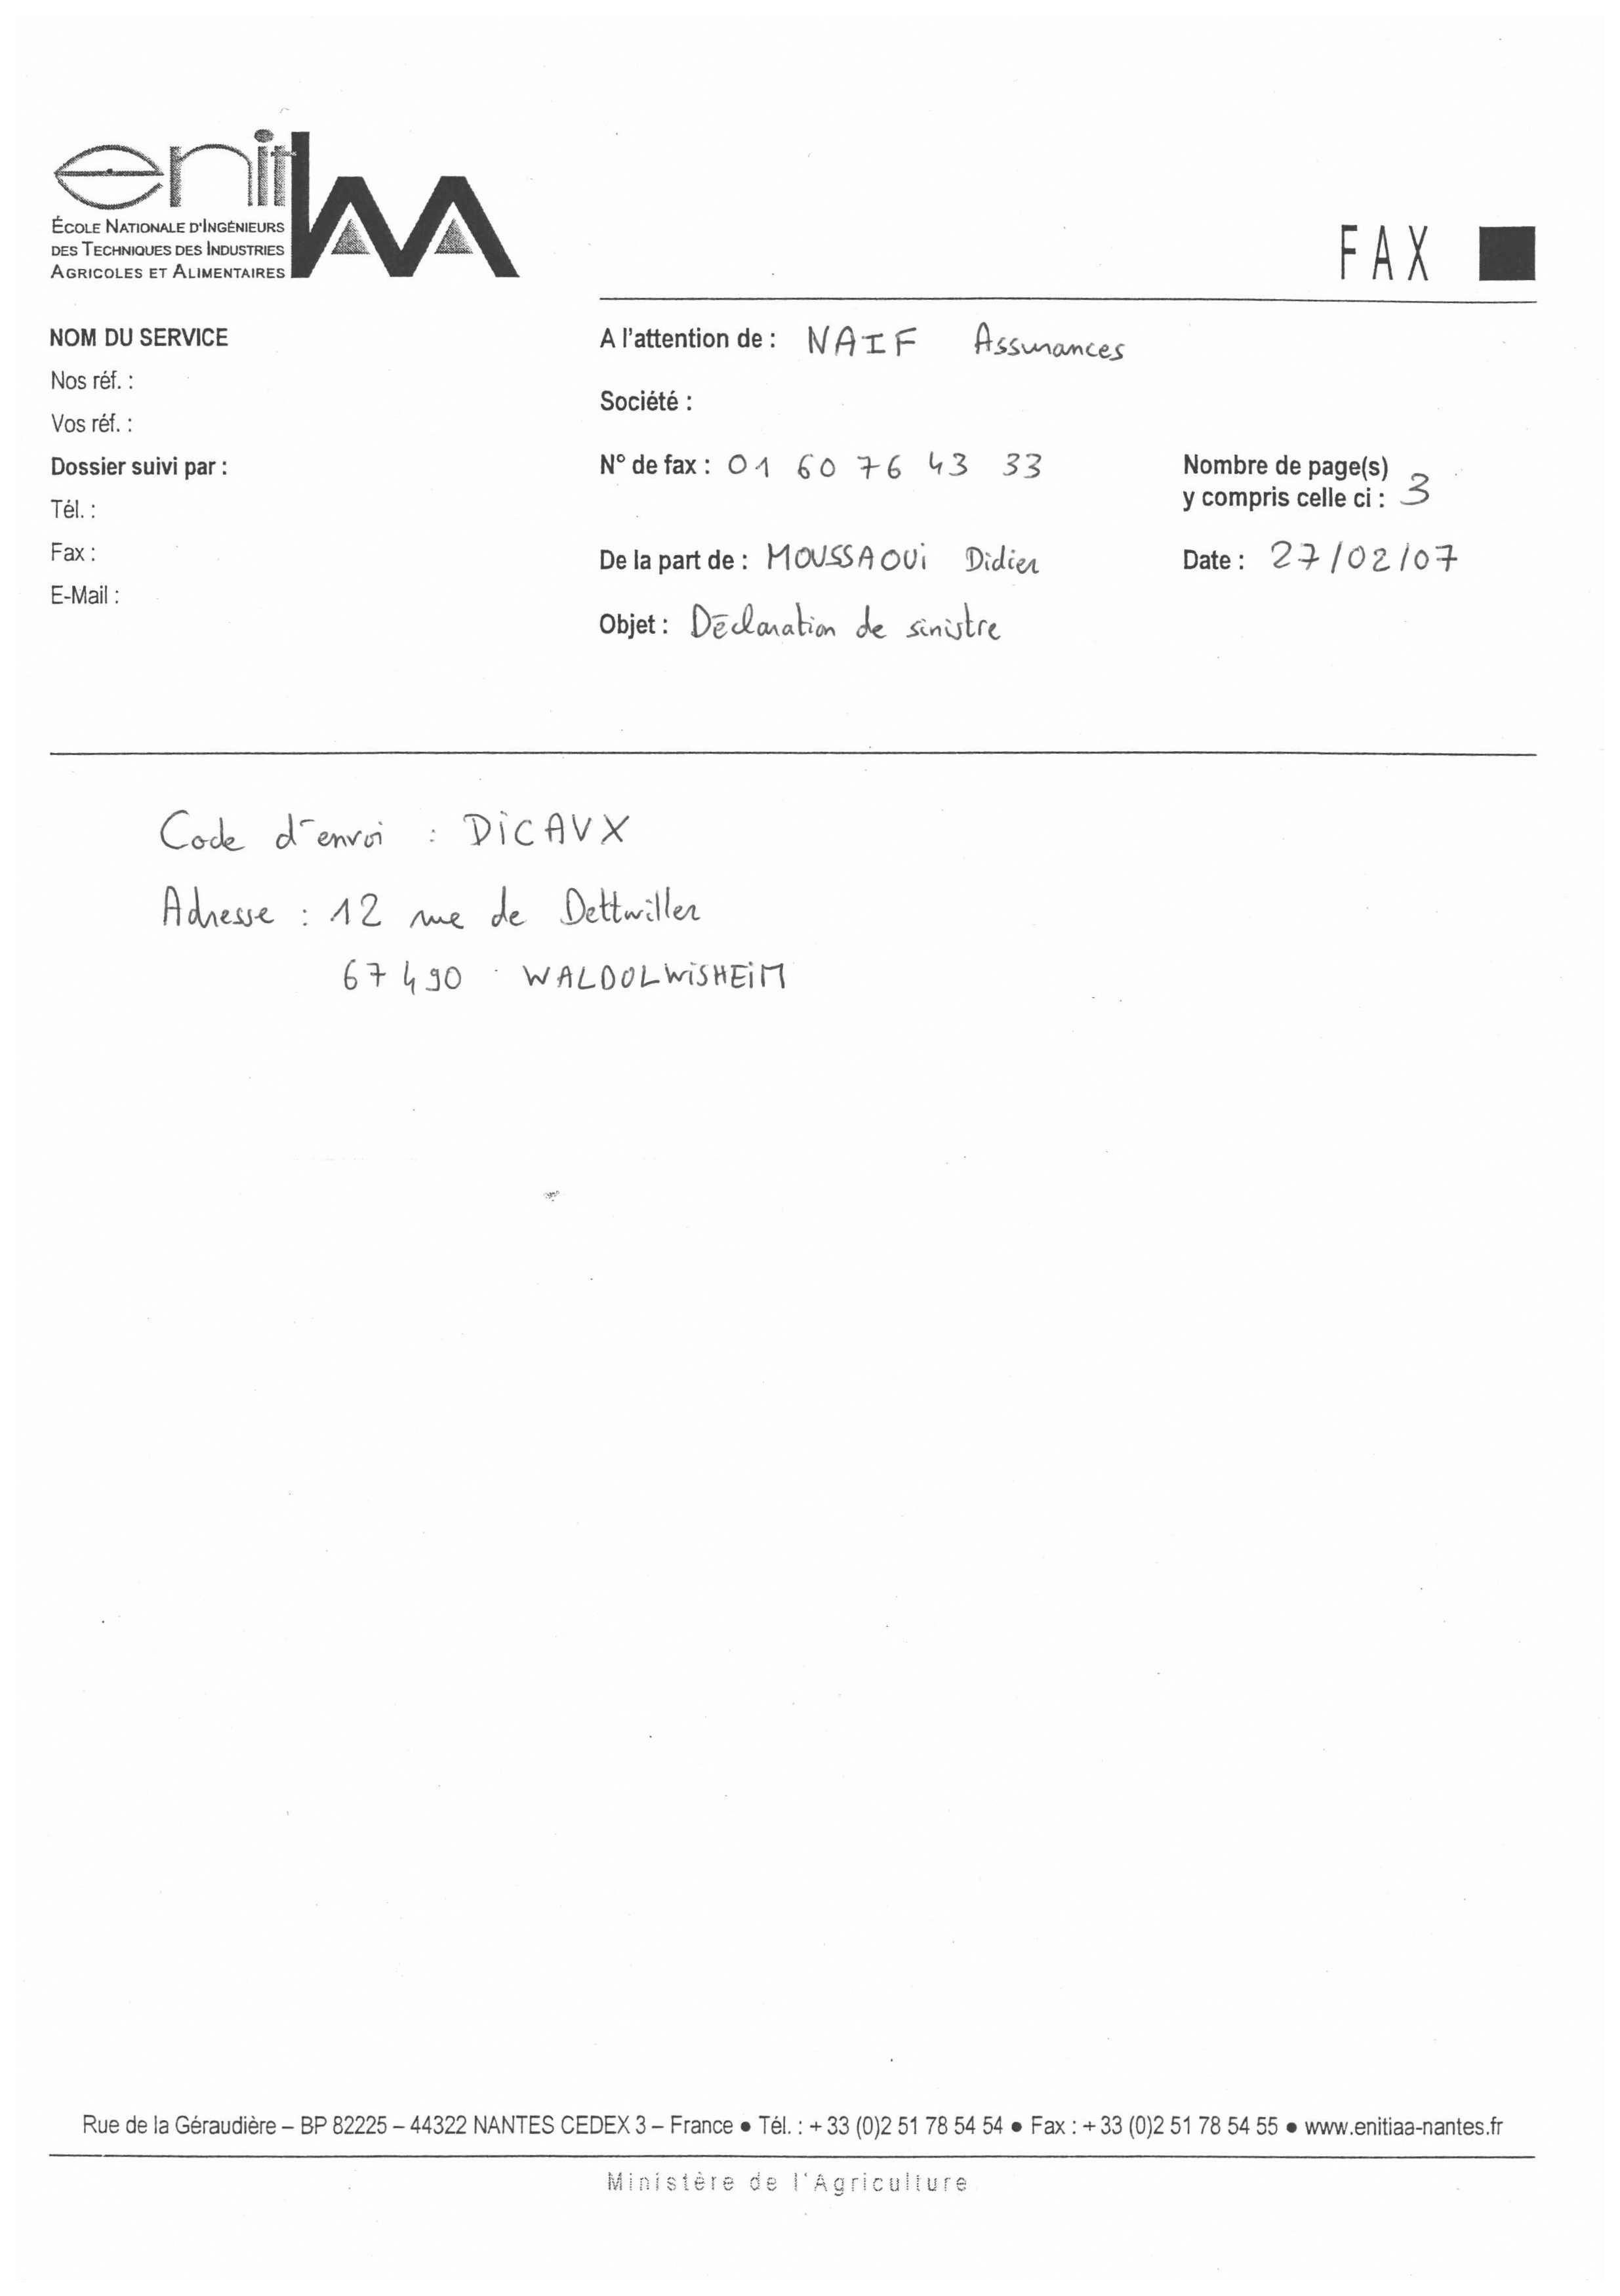 enitIAA
ÉCOLE NATIONALE D'INGÉNIEURS
DES TECHNIQUES DES INDUSTRIES
AGRICOLES ET ALIMENTAIRES
FAX
NOM DU SERVICE
Nos réf. :
Vos réf. :
Dossier suivi par :
Tél. :
Fax :
E-Mail :
A l'attention de : NAIF Assurances
Société :
N° de fax : 01 60 76 43 33
Nombre de page(s)
y compris celle ci : 3
De la part de : MOUSSAOUi Didier
Date : 27/02/07
Objet : Déclaration de sinistre
Code d'envoi : DiCAVX
Adresse : 12 rue de Dettwiller
67490 WALDOLWiSHEiM
Rue de la Géraudière – BP 82225 – 44322 NANTES CEDEX 3 – France ● Tél. : + 33 (0)2 51 78 54 54 ● Fax : + 33 (0)2 51 78 54 55 ● www.enitiaa-nantes.fr
Ministère de l'Agriculture